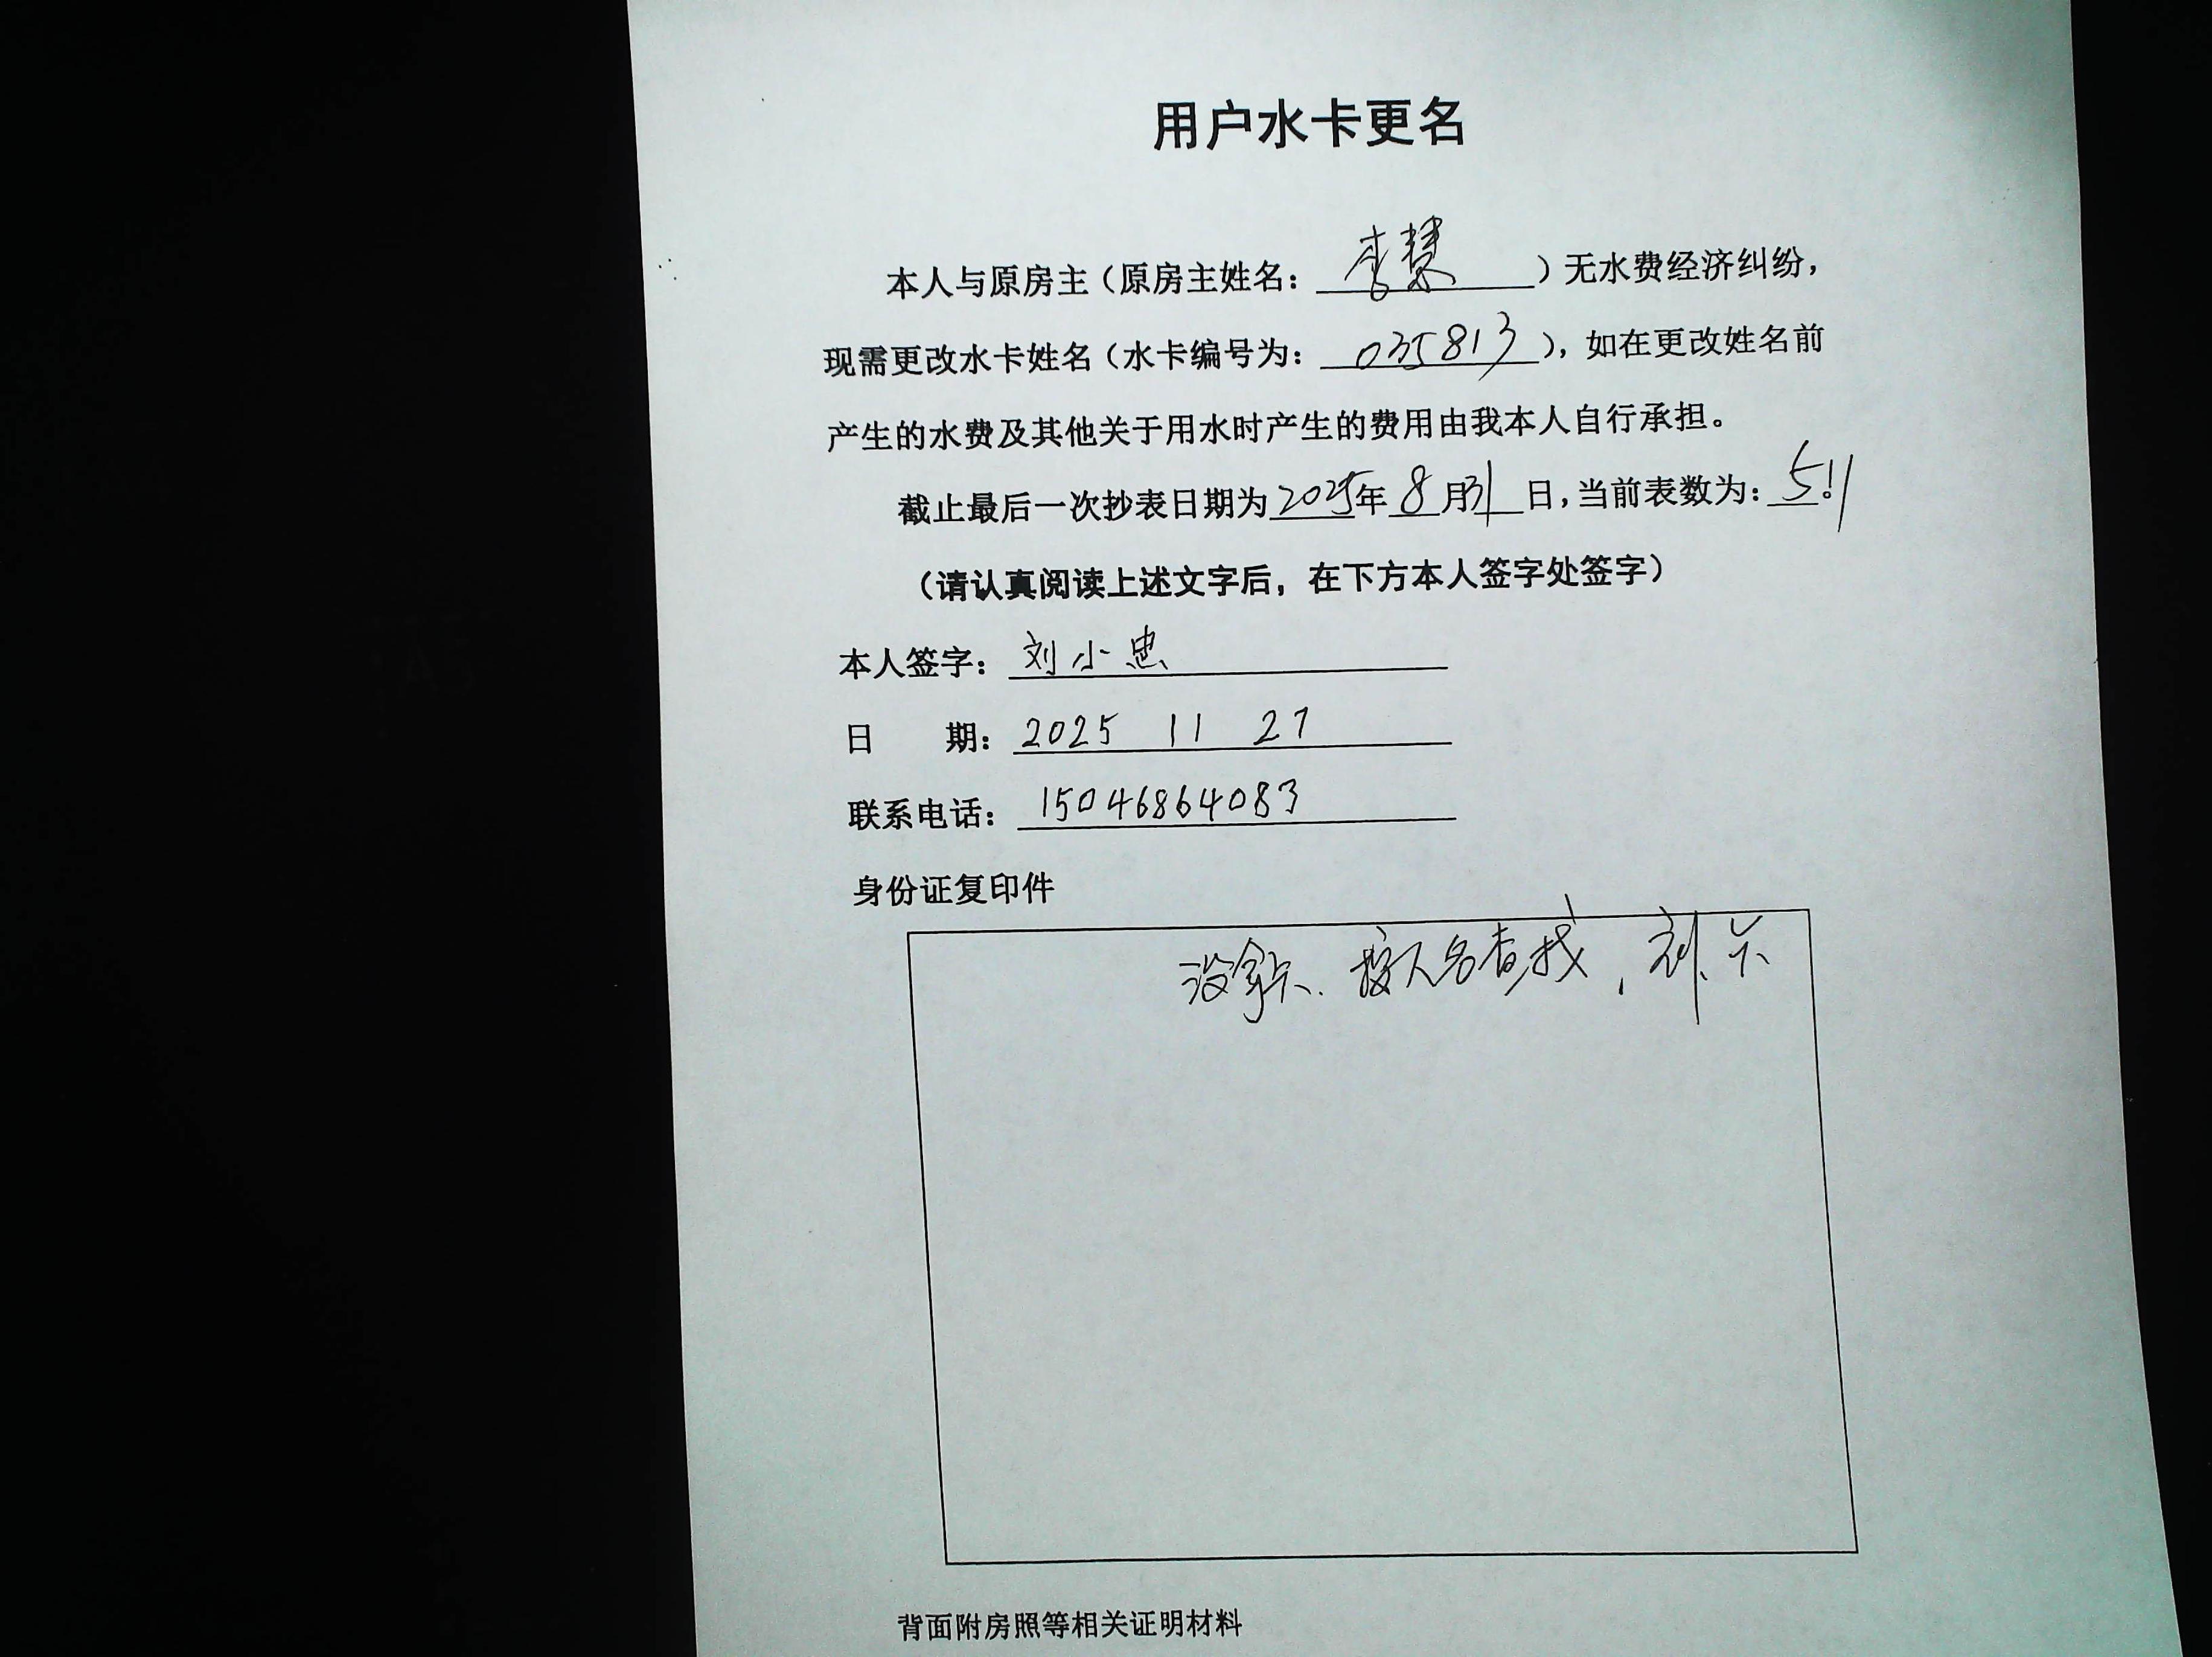 用户水卡更名
本人与原房主（原房主姓名：李慧）无水费经济纠纷，
现需更改水卡姓名（水卡编号为：035813），如在更改姓名前
产生的水费及其他关于用水时产生的费用由我本人自行承担。
截止最后一次抄表日期为2025年8月31日，当前表数为：511
（请认真阅读上述文字后，在下方本人签字处签字）
本人签字：刘小忠
日 期：2025 11 27
联系电话：15046864083
身份证复印件
没拿卡、按人名查找，
背面附房照等相关证明材料